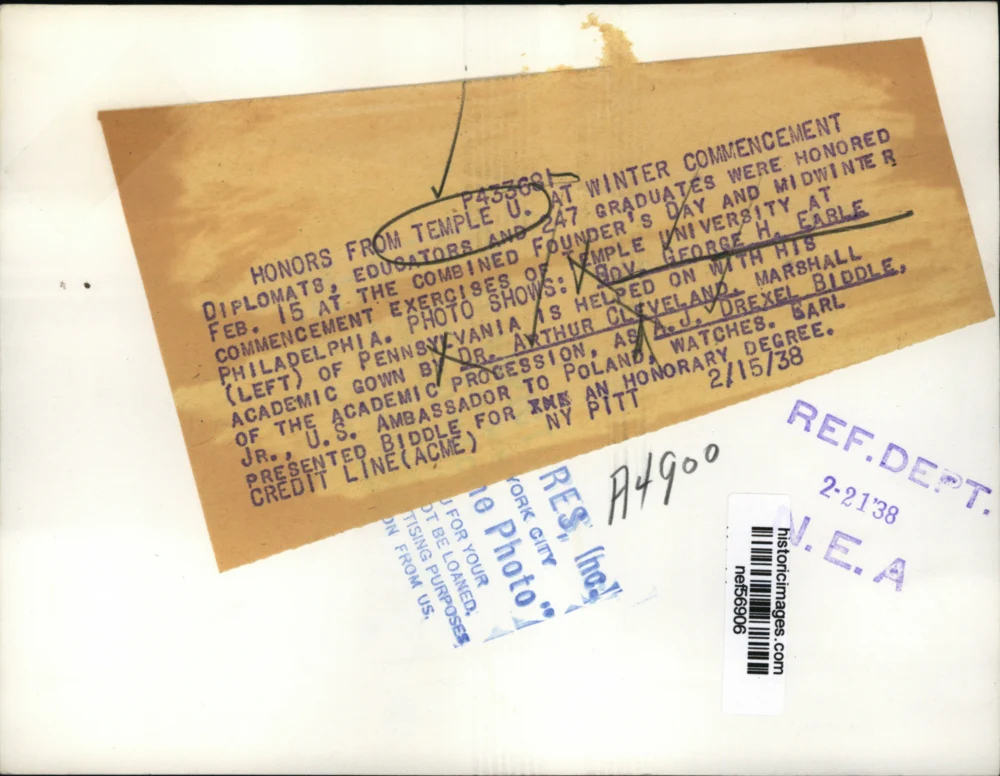 P433681
HONORS FROM TEMPLE U. AT WINTER COMMENCEMENT
DIPLOMATS, EDUCATORS AND 247 GRADUATES WERE HONORED
FEB. 15 AT THE COMBINED FOUNDER'S DAY AND MIDWINTER
COMMENCEMENT EXERCISES OF TEMPLE UNIVERSITY AT
PHILADELPHIA. PHOTO SHOWS: GOV. GEORGE H. EARLE
(LEFT) OF PENNSYLVANIA IS HELPED ON WITH HIS
ACADEMIC GOWN BY DR. ARTHUR CLEVELAND, MARSHALL
OF THE ACADEMIC PROCESSION, AS A.J. DREXEL BIDDLE,
JR., U.S. AMBASSADOR TO POLAND, WATCHES. EARL
PRESENTED BIDDLE FOR XXX AN HONORARY DEGREE.
CREDIT LINE(ACME) NY PITT 2/15/38
A4900
RES, Inc.
YORK CITY
Photo"
FOR YOUR
OT BE LOANED,
TISING PURPOSES
ON FROM US.
REF. DEPT.
2-21'38
N. E. A
historicimages.com
nef56906